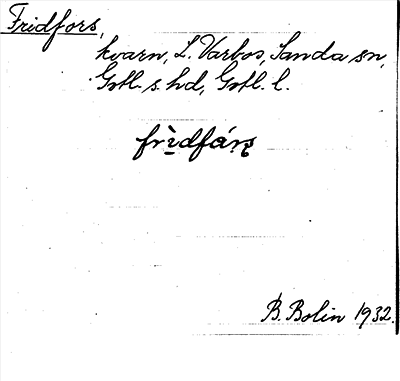 Fridfors,
kvarn, L. Varbos, Sanda sn,
Gotl. s. hd, Gotl. l.
frìdfáɳʂ
B. Bolin 1932.